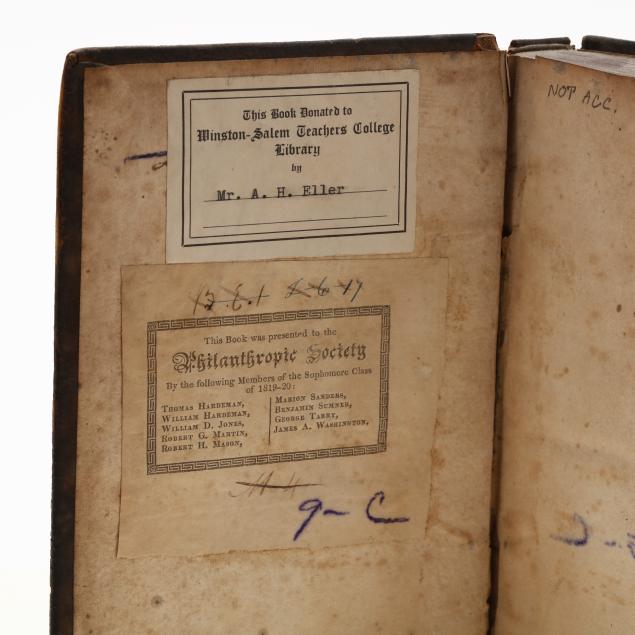 This Book Donated to
Winston-Salem Teachers College
Library
by
Mr. A. H. Eller
NOT ACC.
This Book was presented to the
Philanthropic Society
By the following Members of the Sophomore Class
of 1819-20:
Thomas Hardeman,
William Hardeman,
William D. Jones,
Robert G. Martin,
Robert H. Mason,
Marion Sanders,
Benjamin Sumner,
George Tarry,
James A. Washington,
9-C